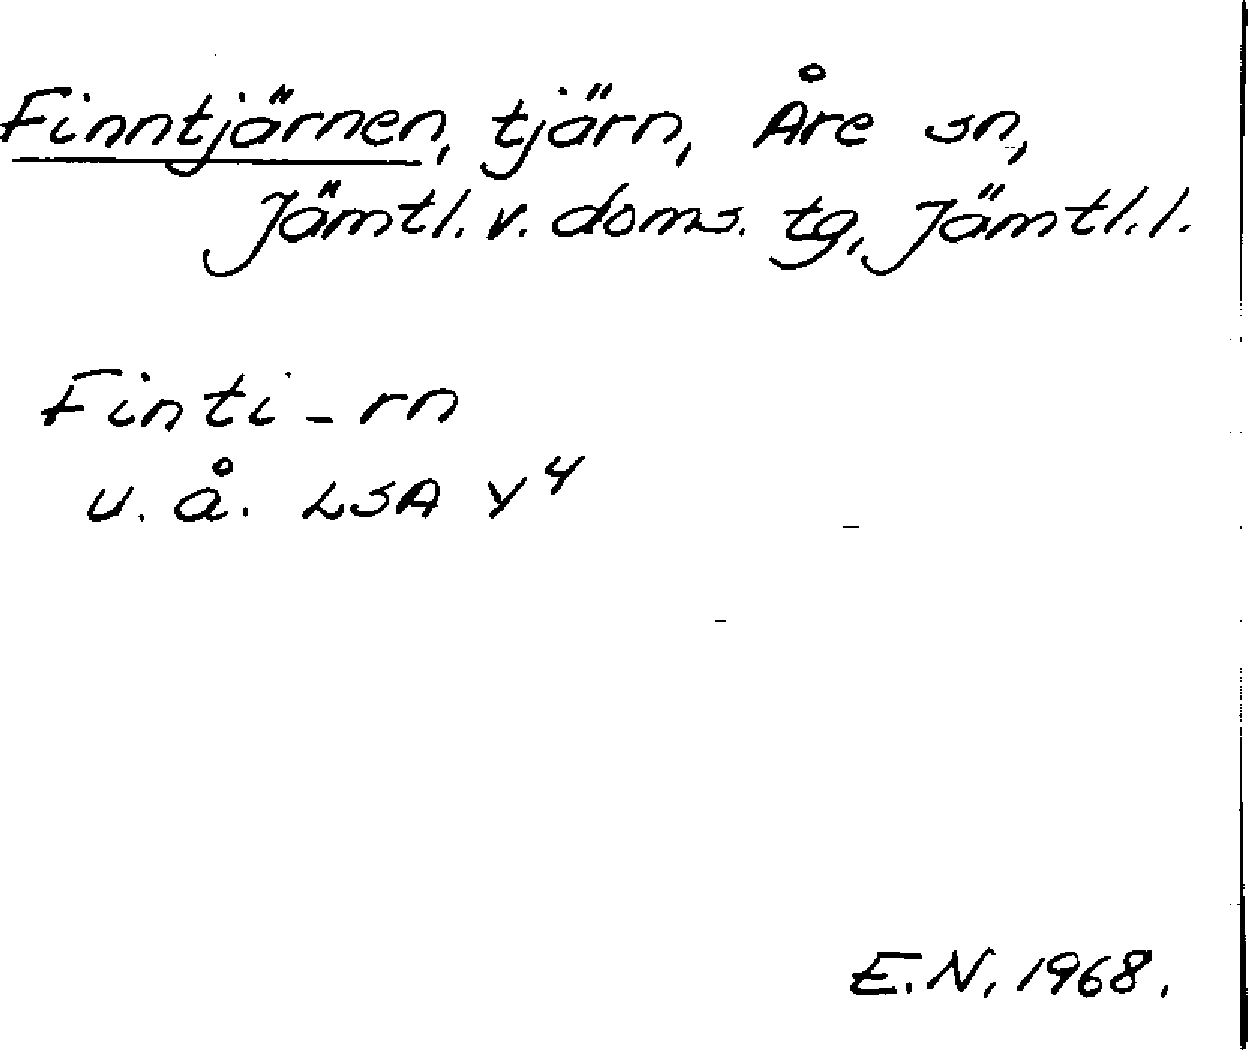 Finntjärnen, tjärn, Åre sn,
Jämtl. v. doms. tg, Jämtl. l.
Finti - rn
u. å. LSA Y 4
E. N. 1968.